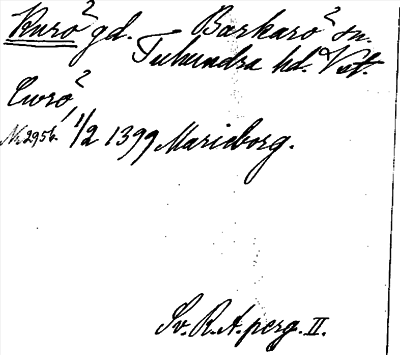 Kurö² gd. Barkarö² sn.
Tuhundra hd. Vstm.
Curö²,
N. 2956. 1/2 1399 Marieborg.
Sv. R. A. perg. II.